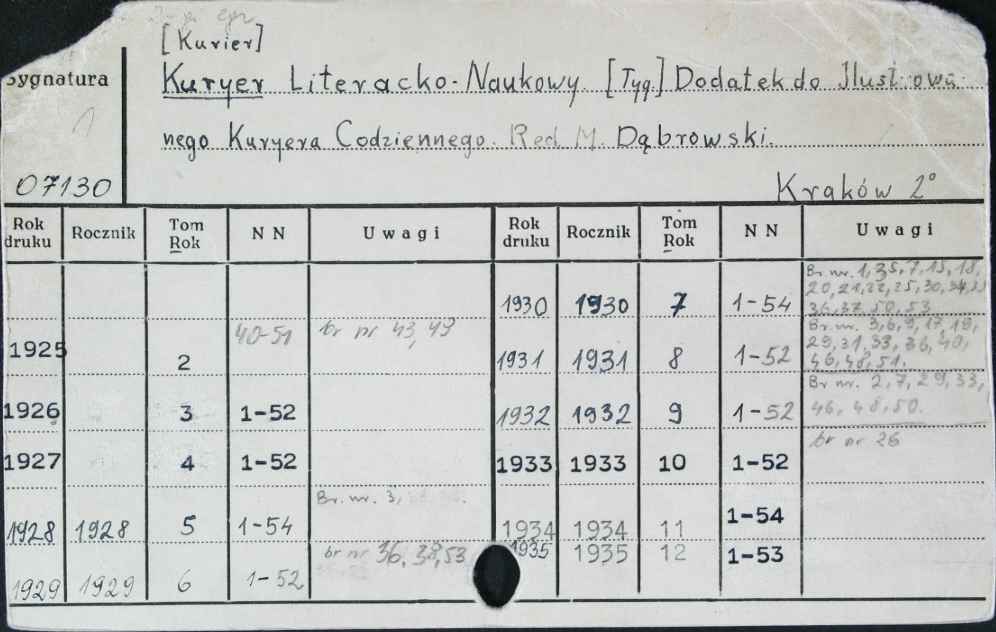 [Kurier]
Sygnatura
Kuryer Literacko-Naukowy. [Tyg.] Dodatek do Ilustrowa-
nego Kuryera Codziennego. Red. M. Dąbrowski.
07130
Kraków 2°
Rok druku Rocznik Tom Rok NN Uwagi Rok druku Rocznik Tom Rok NN Uwagi
1925 2 40-51 br nr 43, 49
1926 3 1-52
1927 4 1-52
1928 1928 5 1-54 Br. nr. 3,
1929 1929 6 1-52 br nr 36, 38, 53
1930 1930 7 1-54 Br. nr. 1, 5, 7, 15, 18,
20, 21, 22, 25, 30, 34,
36, 37, 50, 53
1931 1931 8 1-52 Br. nr. 3, 6, 9, 17, 19,
29, 31, 33, 36, 40,
46, 48, 51.
1932 1932 9 1-52 Br nr. 2, 7, 29, 33,
46, 48, 50.
1933 1933 10 1-52 br nr 26
1934 1934 11 1-54
1935 1935 12 1-53